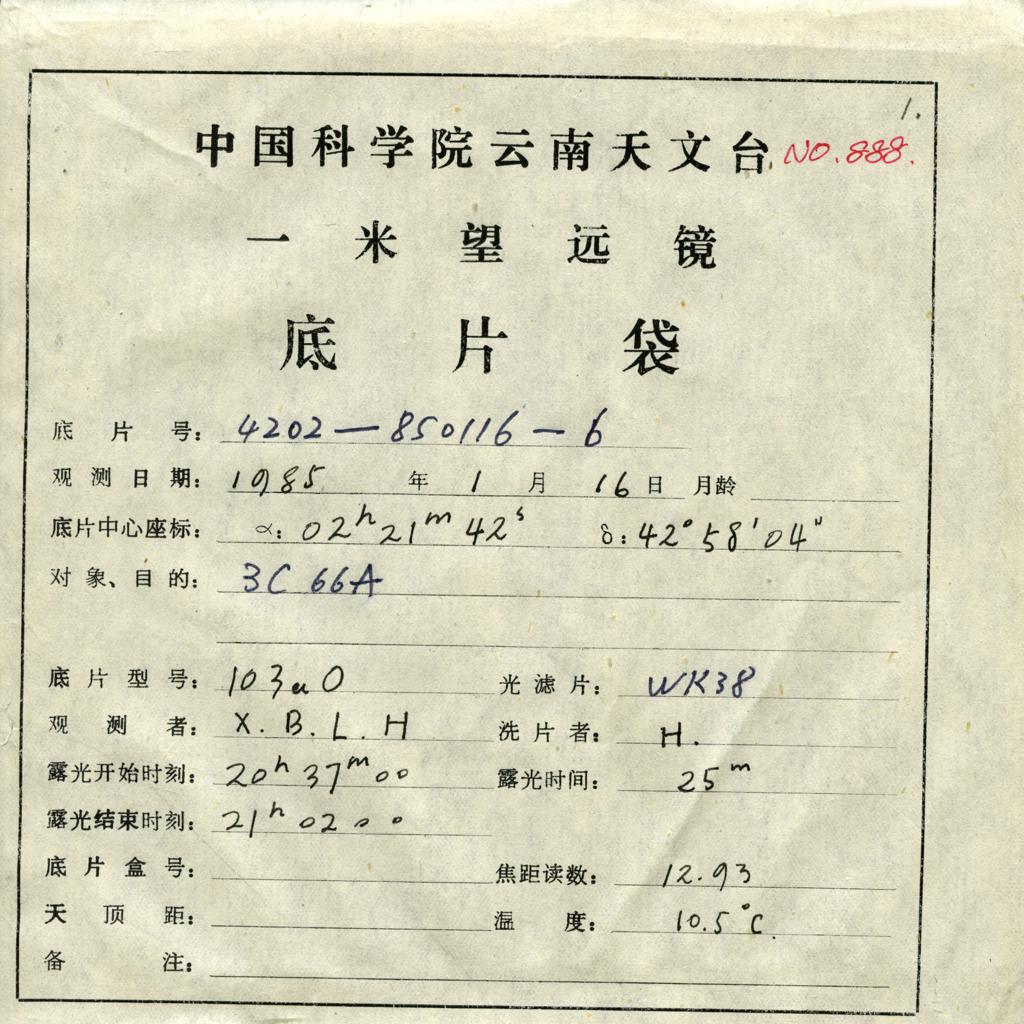 1.
中国科学院云南天文台 NO.888.
一米望远镜
底片袋
底片号: 4202—850116—6
观测日期: 1985 年 1 月 16 日 月龄
底片中心座标: α: 02h 21m 42s δ: 42° 58′ 04″
对象、目的: 3C 66A
底片型号: 103aO 光滤片: WK38
观测者: X. B. L. H 洗片者: H.
露光开始时刻: 20h 37m 00 露光时间: 25m
露光结束时刻: 21h 02 00
底片盒号: 焦距读数: 12.93
天顶距: 温度: 10.5°C.
备注: